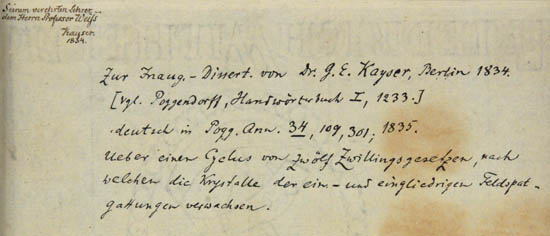 Seinem verehrten Lehrer
dem Herrn Professor Weiſs
Kayser.
1834.
Zur Inaug.-Dissert. von Dr. G. E. Kayser, Berlin 1834.
[vgl. Poggendorff, Handwörterbuch I, 1233.]
deutsch in Pogg. Ann. 34, 109, 301; 1835.
Ueber einen Cyclus von zwölf Zwillingsgesetzen, nach
welchen die Krystalle der ein- und eingliedrigen Feldspat-
gattungen verwachsen.